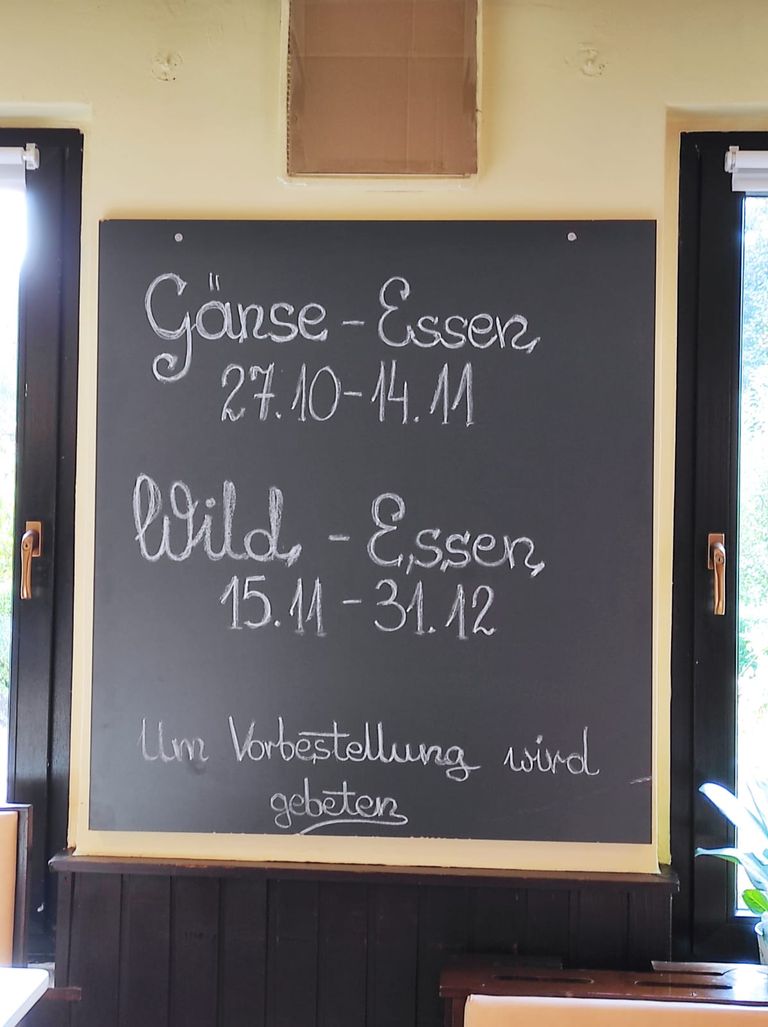 Gänse - Essen
27.10-14.11
Wild - Essen
15.11 - 31.12
Um Vorbestellung wird
gebeten